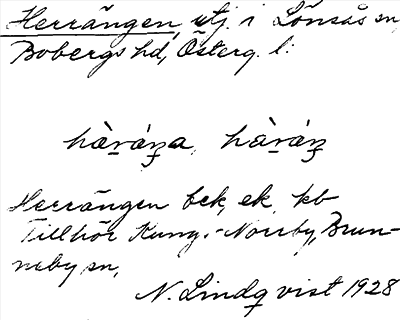 Herrängen, utj. i Lönsås sn,
Bobergs hd, Österg. l:
hàráŋa, hàráŋ
Herrängen bek, ek, kb
Tillhör Kung.-Norrby, Brun-
neby sn,
N. Lindqvist 1928